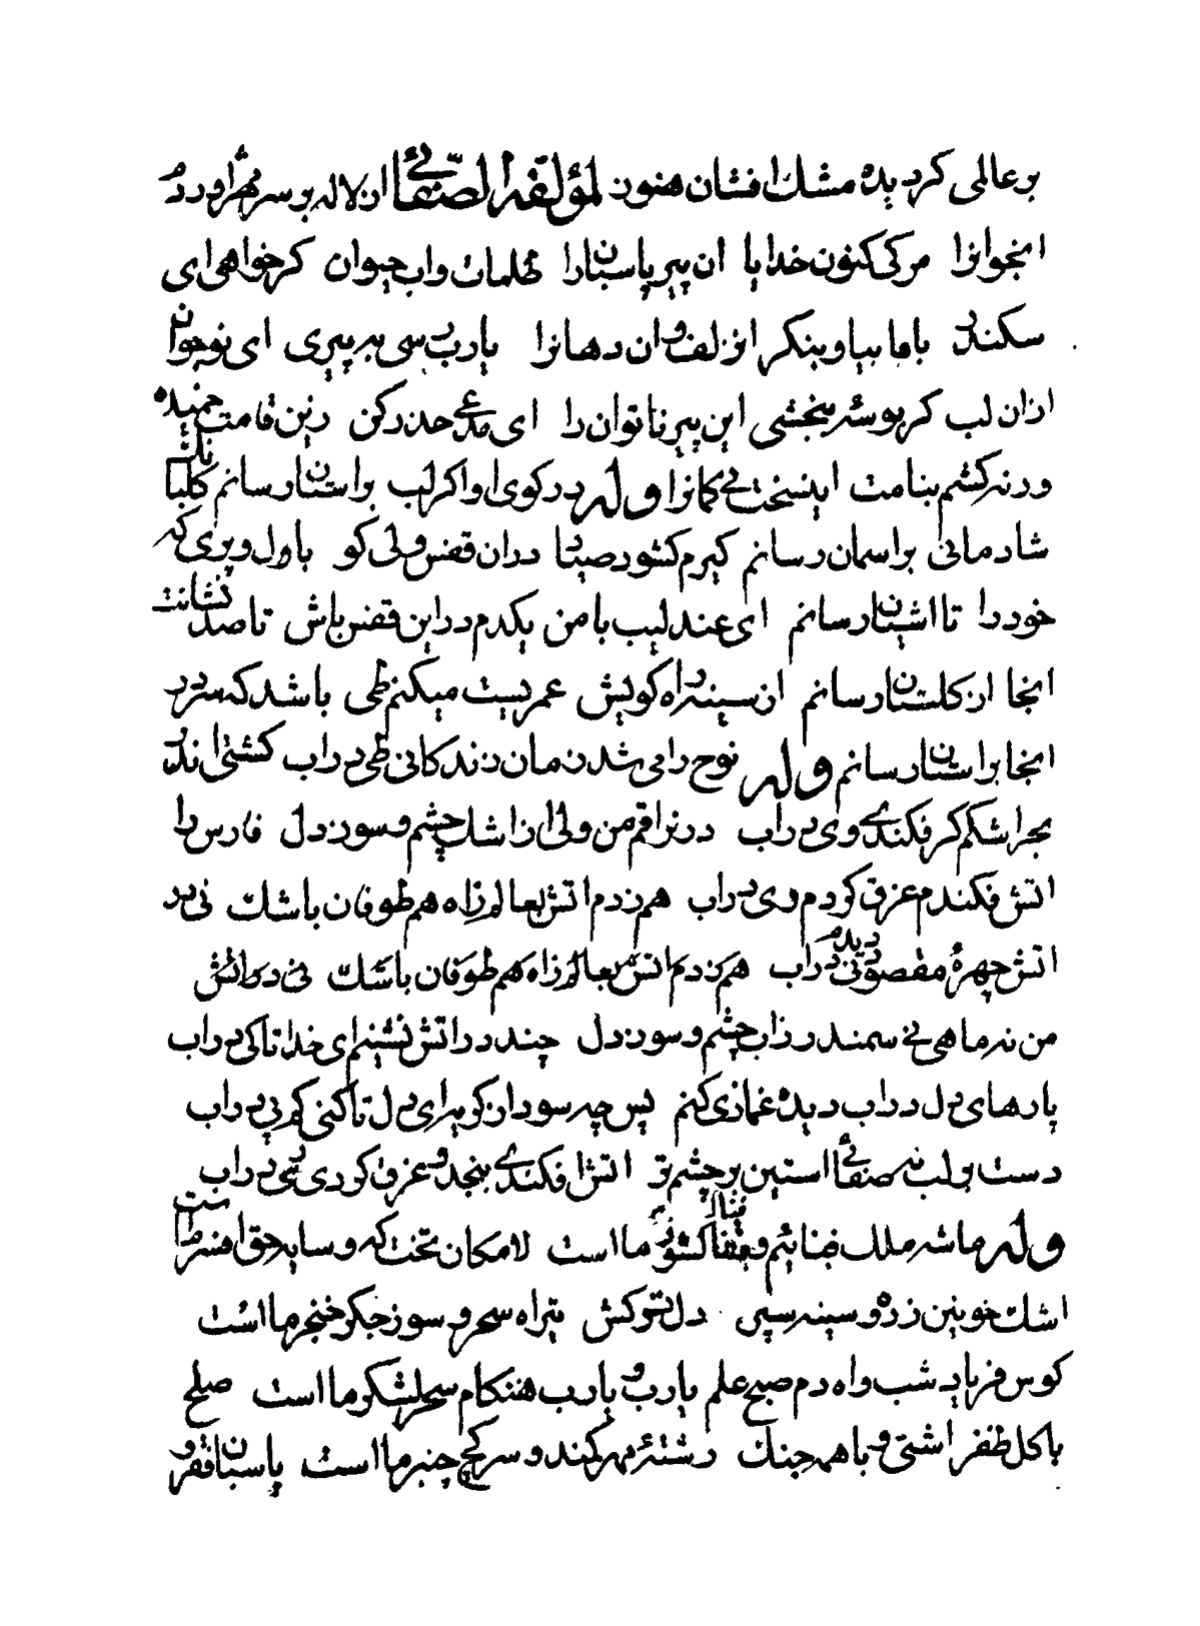 بر عالی کرد یده مشک افشان هنوز لمؤلفه الصفائی از لاله بر سر مهر اورده
انجوانرا مرکی کنون خدایا ان پیر پاسبانرا ظلمات واب حیوان کر خواهی ای
سکندر با ما بیا و بنکر انزلف و ان دهانرا یارب رسی به پیری ای نوجوان
ازان لب کر بوسهٔ ببخشی این پیر ناتوان را ای مدعی حذر کن زین قامت خمیده
ورنه کشم بنامت این سخت پی کمانرا وله در کوی او اکر لب بر استان رسانم کلبانک
شادمانی بر اسمان رسانم کیرم کشود صیاد در ان قفس ولی کو بال و پری که
خود را تا اشیان رسانم ای عندلیب با من یکدم در این قفس باش تا صد نشانت
انجا از کلستان رسانم ان سینه در راه کویش عمریست میکنم طی باشد که سر در
انجا بر استان رسانم وله نوح را می شد زمان زندکانی طی در اب کشتی اندر
بحر اشکم کر فکندی وی در اب در نراقم من ولی از اشک چشم و سوز دل فارس را
اتش فکندم عزق کردم ری در اب هم زدم اتش بعالم زاه هم طوفان باشک نی در
اتش چهرهٔ مقصود دیدم نی در اب هم زدم اتش بعالم زاه هم طوفان باشک نی در اتش
من نه ماهی نی سمندر زاب چشم و سوز دل چند در اتش نشینم ای خدا تا کی در اب
پارهای دل در اب دیده غمازی کنم پس چه سود ان کو برای دل تا کنی کم پی در اب
دست بر لب نه صفائی استین بر چشم تر اتش افکندی بنجد و عزق کردی حی در اب
وله ما شه ملک فنائیم و بقا کشور ما است لامکان تختکه و سایه حق افسر ماست
اشک خونین زره و سینه سپر دل ترکش تیر اه سحر و سوز جکر خنجر ما است
کوس فریاد شب واه دم صبح علم یارب و یارب هنکام سحر لشکر ما است صلح
با کل ظفر اشتی و با همه جنک رشتهٔ مهر کمند و سر کج چنبر ما است پاسبان فقر و